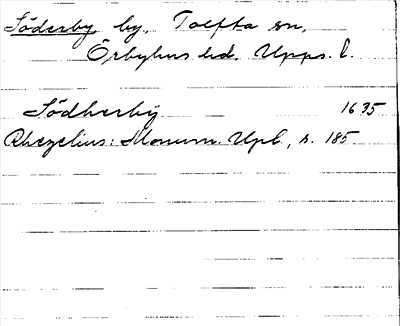 Söderby by, Tolfta sn,
Örbyhus hd. Upps. l.
Södherby 1635
Rhezelius: Monum. Upl., s. 185